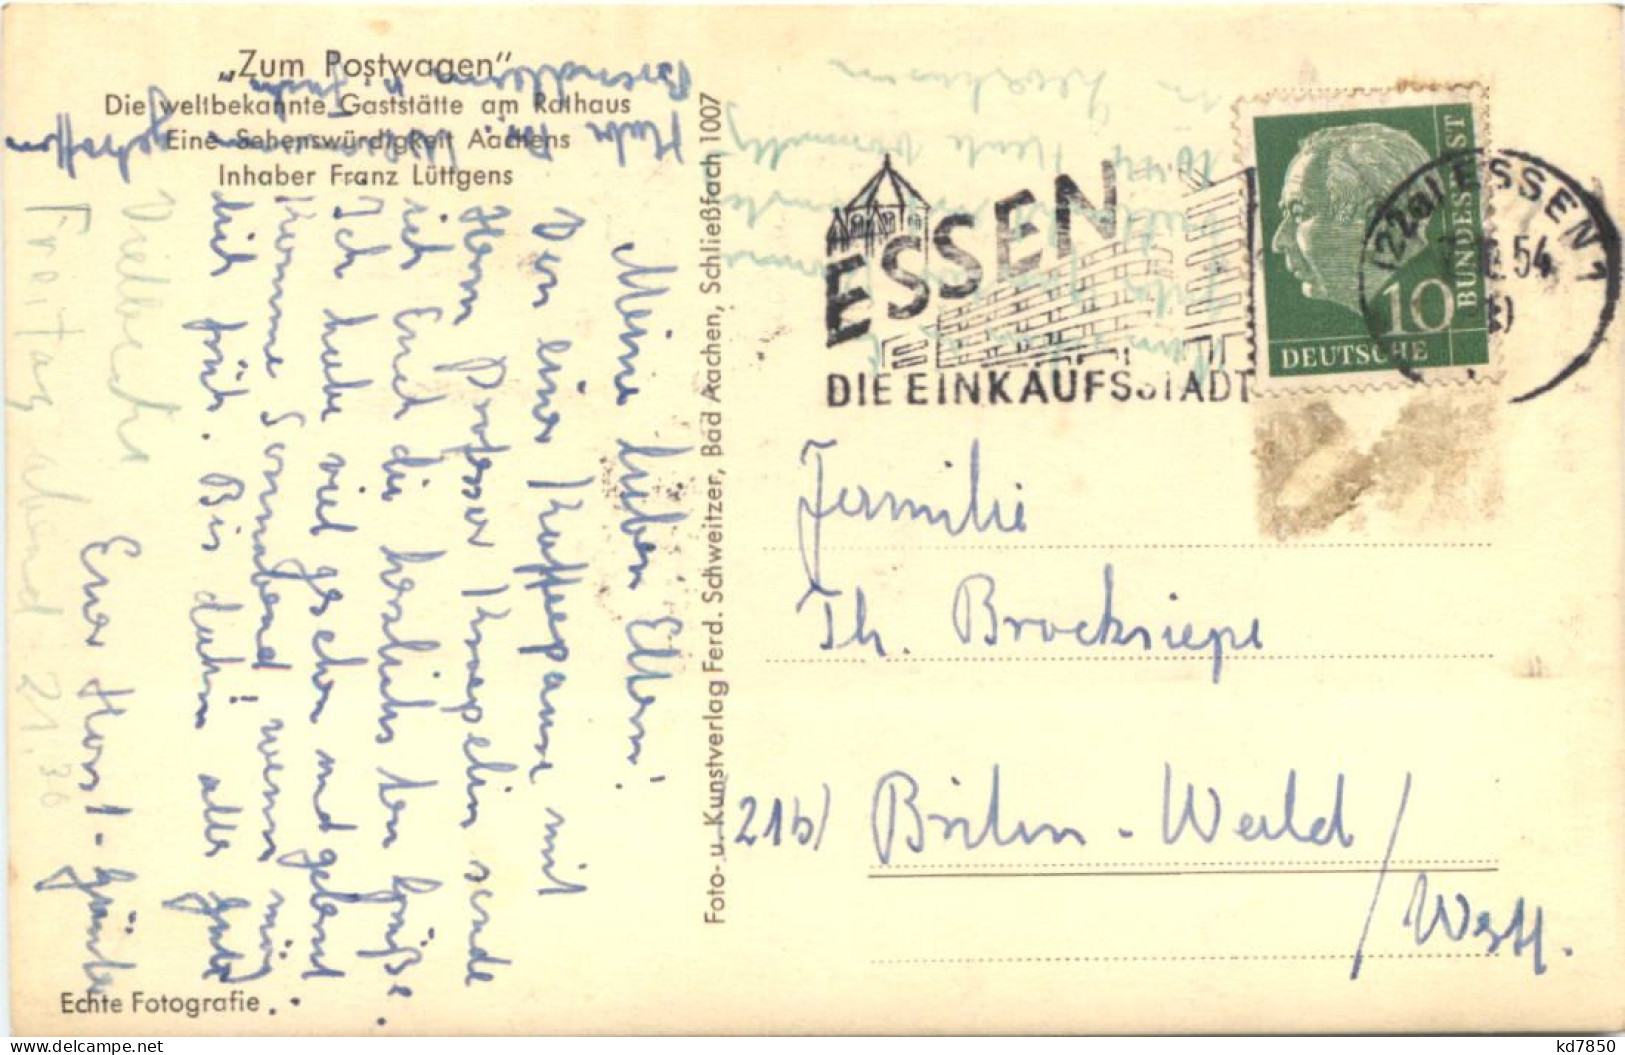 „Zum Postwagen"
Die weltbekannte Gaststätte am Rathaus
Eine Sehenswürdigkeit Aachens
Inhaber Franz Lüttgens
Meine lieben Eltern!
Von einer Kaffeepause mit
Herrn Professor Kraepelin sende
ich Euch die herzlichsten Grüße.
Ich habe viel gesehen und gelernt.
Komme Sonnabend, wenn mög
lich früh. Bis dahin alles Gute!
Euer Horst-Günter
Vielleicht
Freitag abend 21.30
Habe
getroffen
Echte Fotografie
Foto- u. Kunstverlag Ferd. Schweitzer, Bad Aachen, Schließfach 1007
ESSEN
DIE EINKAUFSSTADT
(22a) ESSEN 1
54
10
DEUTSCHE
BUNDESPOST
Familie
Th. Brocksiepe
21b) Brilon-Wald/
Westf.
kd7850